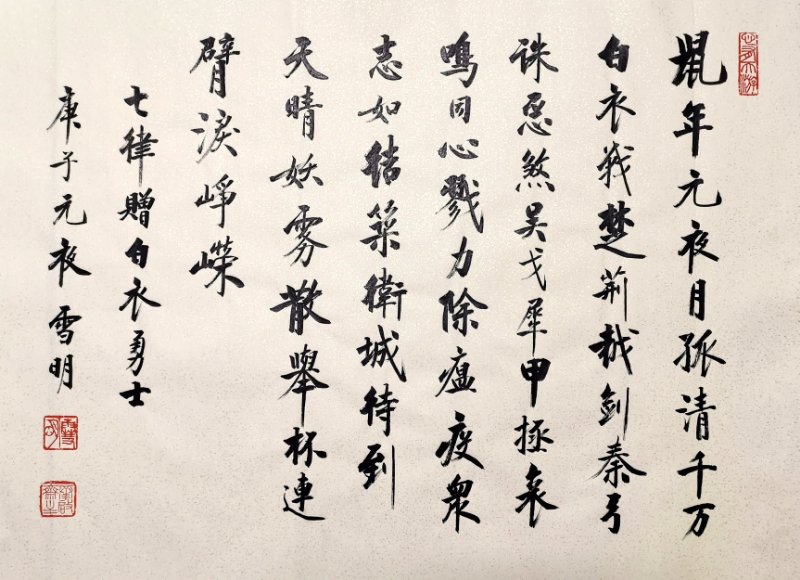 鼠年元夜月孤清千万
白衣战楚荆越剑秦弓
诛恶煞吴戈犀甲拯哀
鳴同心戮力除瘟疫眾
志如结築衛城待到
天晴妖雾散舉杯連
臂淚峥嶸
七律贈白衣勇士
庚子元夜 雪明